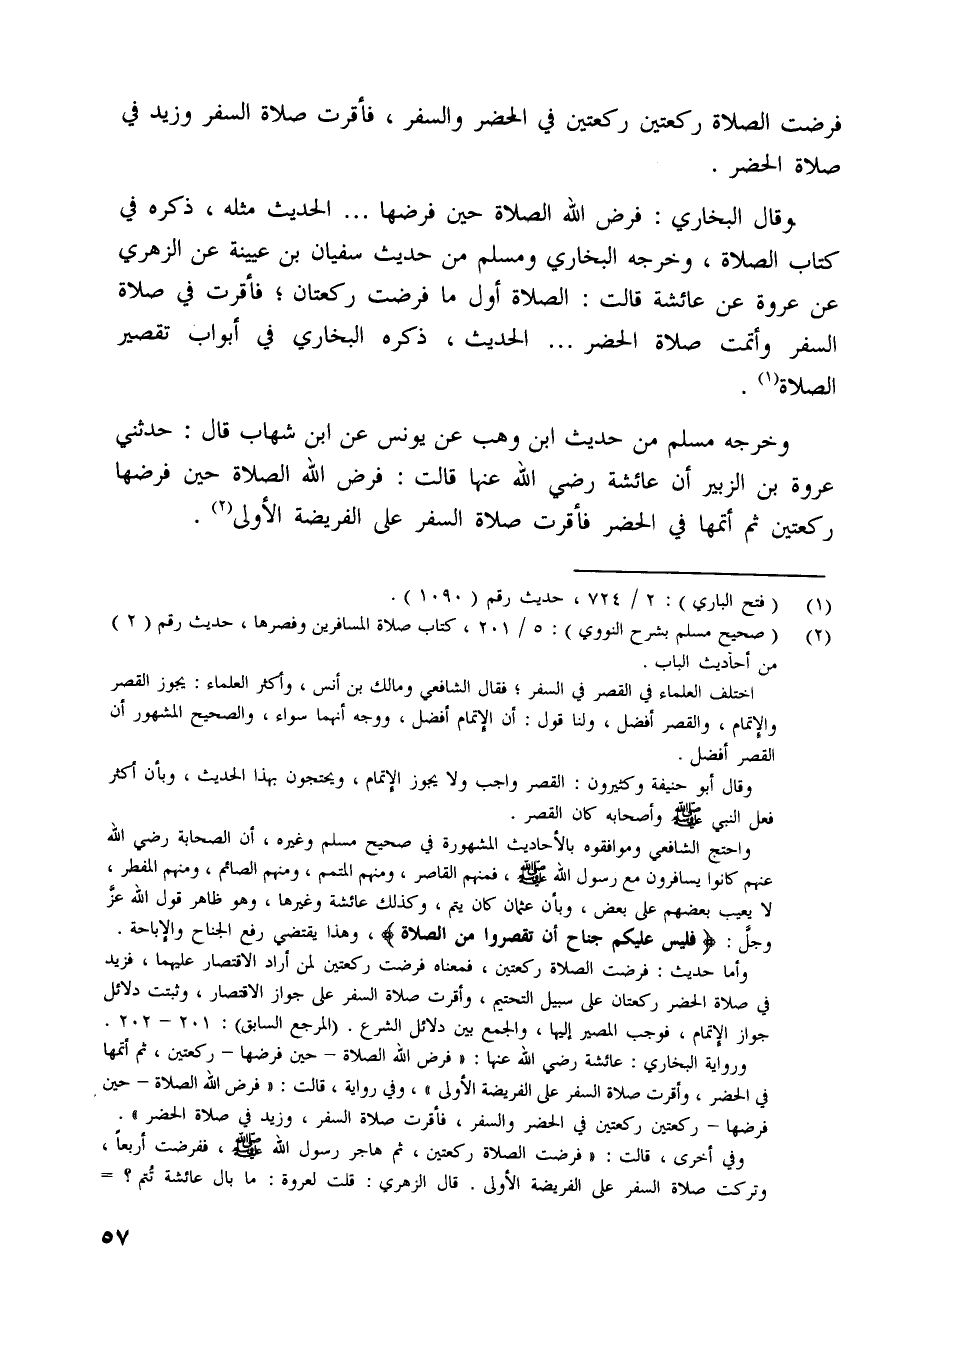 فرضت الصلاة ركعتين ركعتين في الحضر والسفر ، فأقرت صلاة السفر وزيد في
صلاة الحضر .
وقال البخاري : فرض الله الصلاة حين فرضها ... الحديث مثله ، ذكره في
كتاب الصلاة ، وخرجه البخاري ومسلم من حديث سفيان بن عيينة عن الزهري
عن عروة عن عائشة قالت : الصلاة أول ما فرضت ركعتان ؛ فأقرت في صلاة
السفر وأتمت صلاة الحضر ... الحديث ، ذكره البخاري في أبواب تقصير
الصلاة(١) .
وخرجه مسلم من حديث ابن وهب عن يونس عن ابن شهاب قال : حدثني
عروة بن الزبير أن عائشة رضي الله عنها قالت : فرض الله الصلاة حين فرضها
ركعتين ثم أتمها في الحضر فأقرت صلاة السفر على الفريضة الأولى(٢) .
(١) ( فتح الباري ) : ٢ / ٧٢٤ ، حديث رقم ( ١٠٩٠ ) .
(٢) ( صحيح مسلم بشرح النووي ) : ٥ / ٢٠١ ، كتاب صلاة المسافرين وقصرها ، حديث رقم ( ٢ )
من أحاديث الباب .
اختلف العلماء في القصر في السفر ؛ فقال الشافعي ومالك بن أنس ، وأكثر العلماء : يجوز القصر
والإتمام ، والقصر أفضل ، ولنا قول : أن الإتمام أفضل ، ووجه أنهما سواء ، والصحيح المشهور أن
القصر أفضل .
وقال أبو حنيفة وكثيرون : القصر واجب ولا يجوز الإتمام ، ويحتجون بهذا الحديث ، وبأن أكثر
فعل النبي ﷺ وأصحابه كان القصر .
واحتج الشافعي وموافقوه بالأحاديث المشهورة في صحيح مسلم وغيره ، أن الصحابة رضي الله
عنهم كانوا يسافرون مع رسول الله ﷺ ، فمنهم القاصر ، ومنهم المتمم ، ومنهم الصائم ، ومنهم المفطر ،
لا يعيب بعضهم على بعض ، وبأن عثمان كان يتم ، وكذلك عائشة وغيرها ، وهو ظاهر قول الله عزَّ
وجلَّ : ﴿ فليس عليكم جناح أن تقصروا من الصلاة ﴾ ، وهذا يقتضي رفع الجناح والإباحة .
وأما حديث : فرضت الصلاة ركعتين ، فمعناه فرضت ركعتين لمن أراد الاقتصار عليهما ، فزيد
في صلاة الحضر ركعتان على سبيل التحتيم ، وأقرت صلاة السفر على جواز الاقتصار ، وثبتت دلائل
جواز الإتمام ، فوجب المصير إليها ، والجمع بين دلائل الشرع . (المرجع السابق) : ٢٠١ – ٢٠٢ .
ورواية البخاري : عائشة رضي الله عنها : « فرض الله الصلاة – حين فرضها – ركعتين ، ثم أتمها
في الحضر ، وأقرت صلاة السفر على الفريضة الأولى » ، وفي رواية ، قالت : « فرض الله الصلاة – حين
فرضها – ركعتين ركعتين في الحضر والسفر ، فأقرت صلاة السفر ، وزيد في صلاة الحضر » .
وفي أخرى ، قالت : « فرضت الصلاة ركعتين ، ثم هاجر رسول الله ﷺ ، ففرضت أربعاً ،
وتركت صلاة السفر على الفريضة الأولى . قال الزهري : قلت لعروة : ما بال عائشة تُتم ؟ =
٥٧